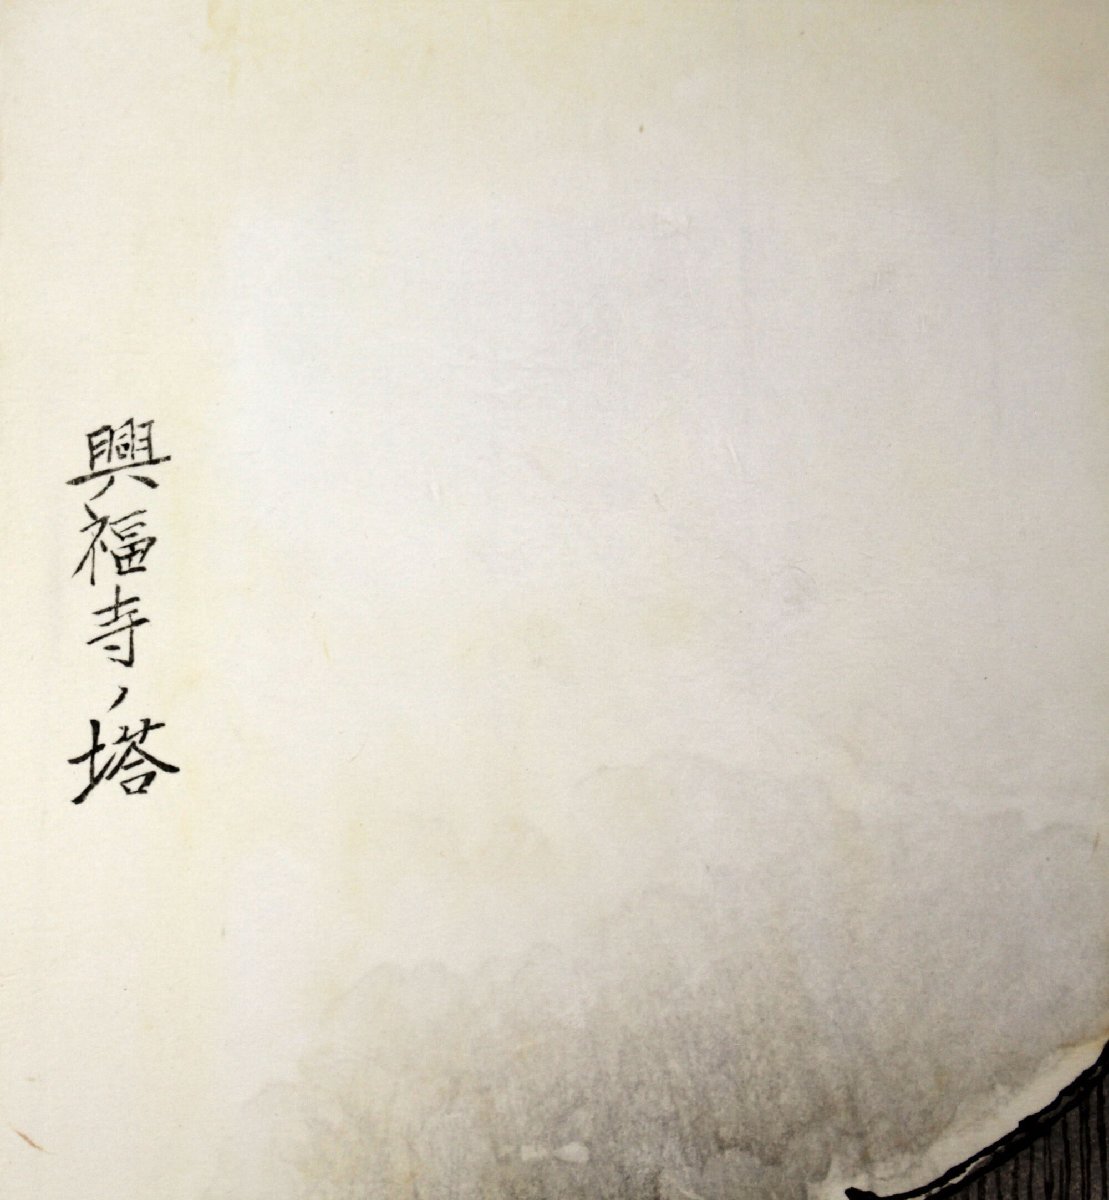 興福寺ノ塔